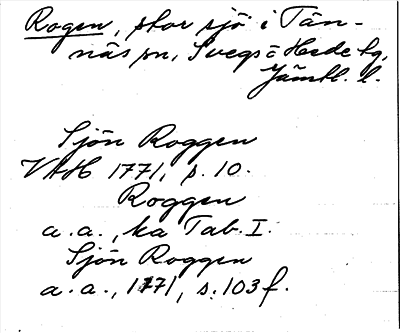 Rogen, stor sjö i Tän-
näs sn, Svegs o Hede tg,
Jämtl. l.
Sjön Roggen
VAH 1771, s. 10.
Roggen
a. a., ka Tab. I.
Sjön Roggen
a. a., 1771, s. 103 f.